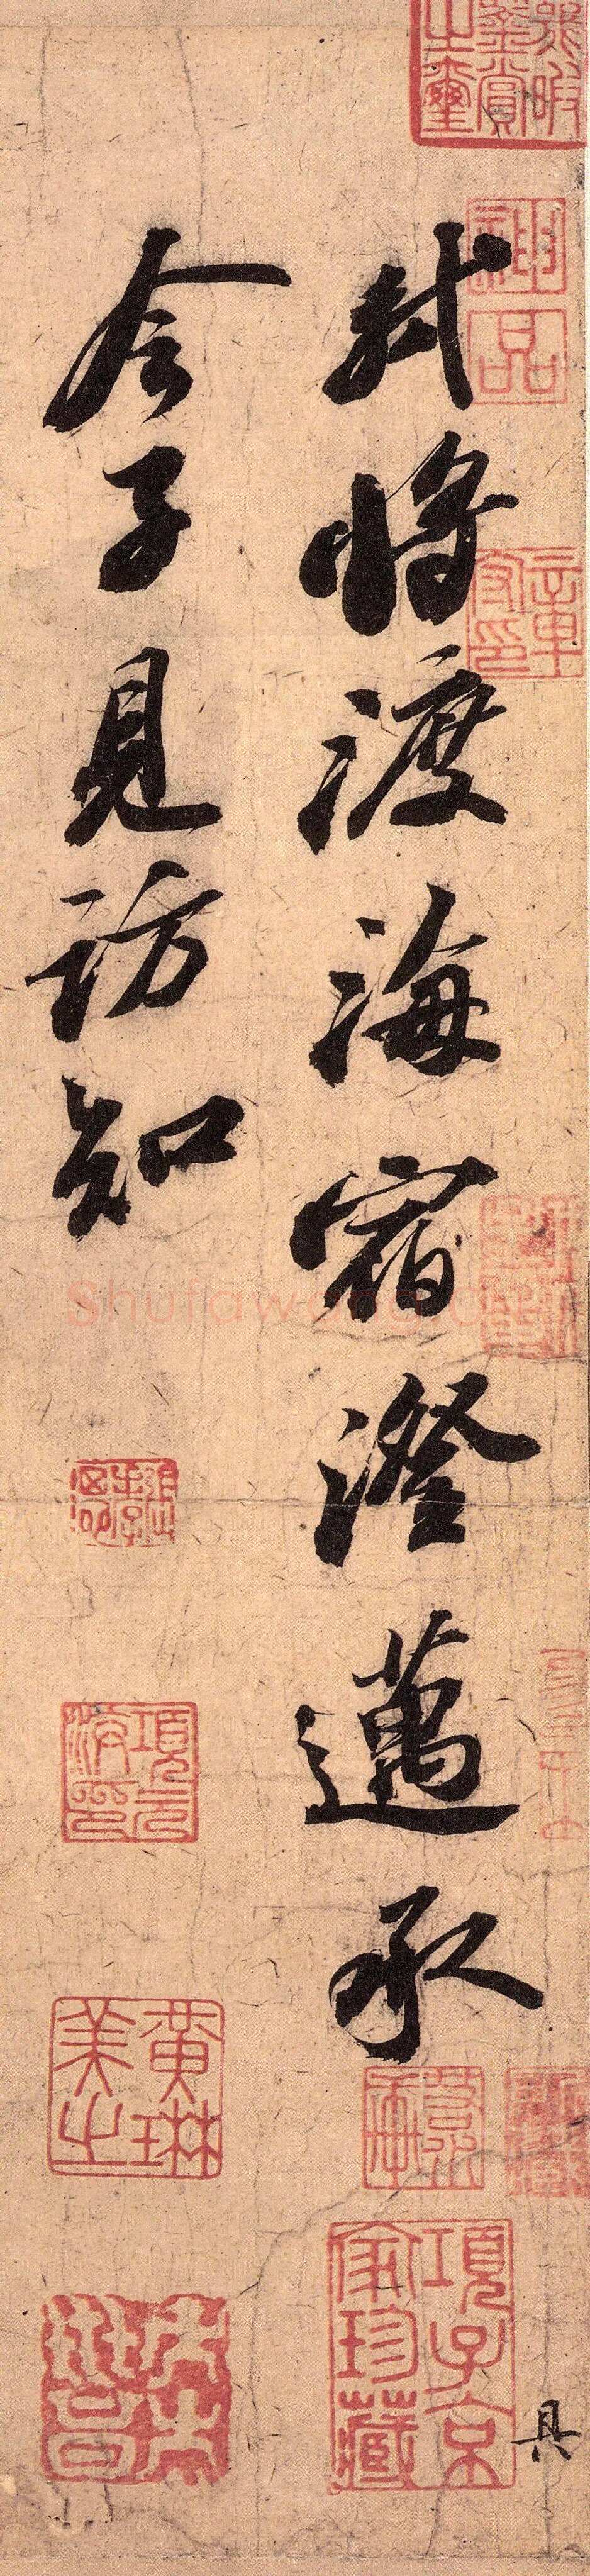 軾將渡海宿澄邁承
令子見訪知
具
項子京
家珍藏
神品
黃琳
美之
項元
汴印